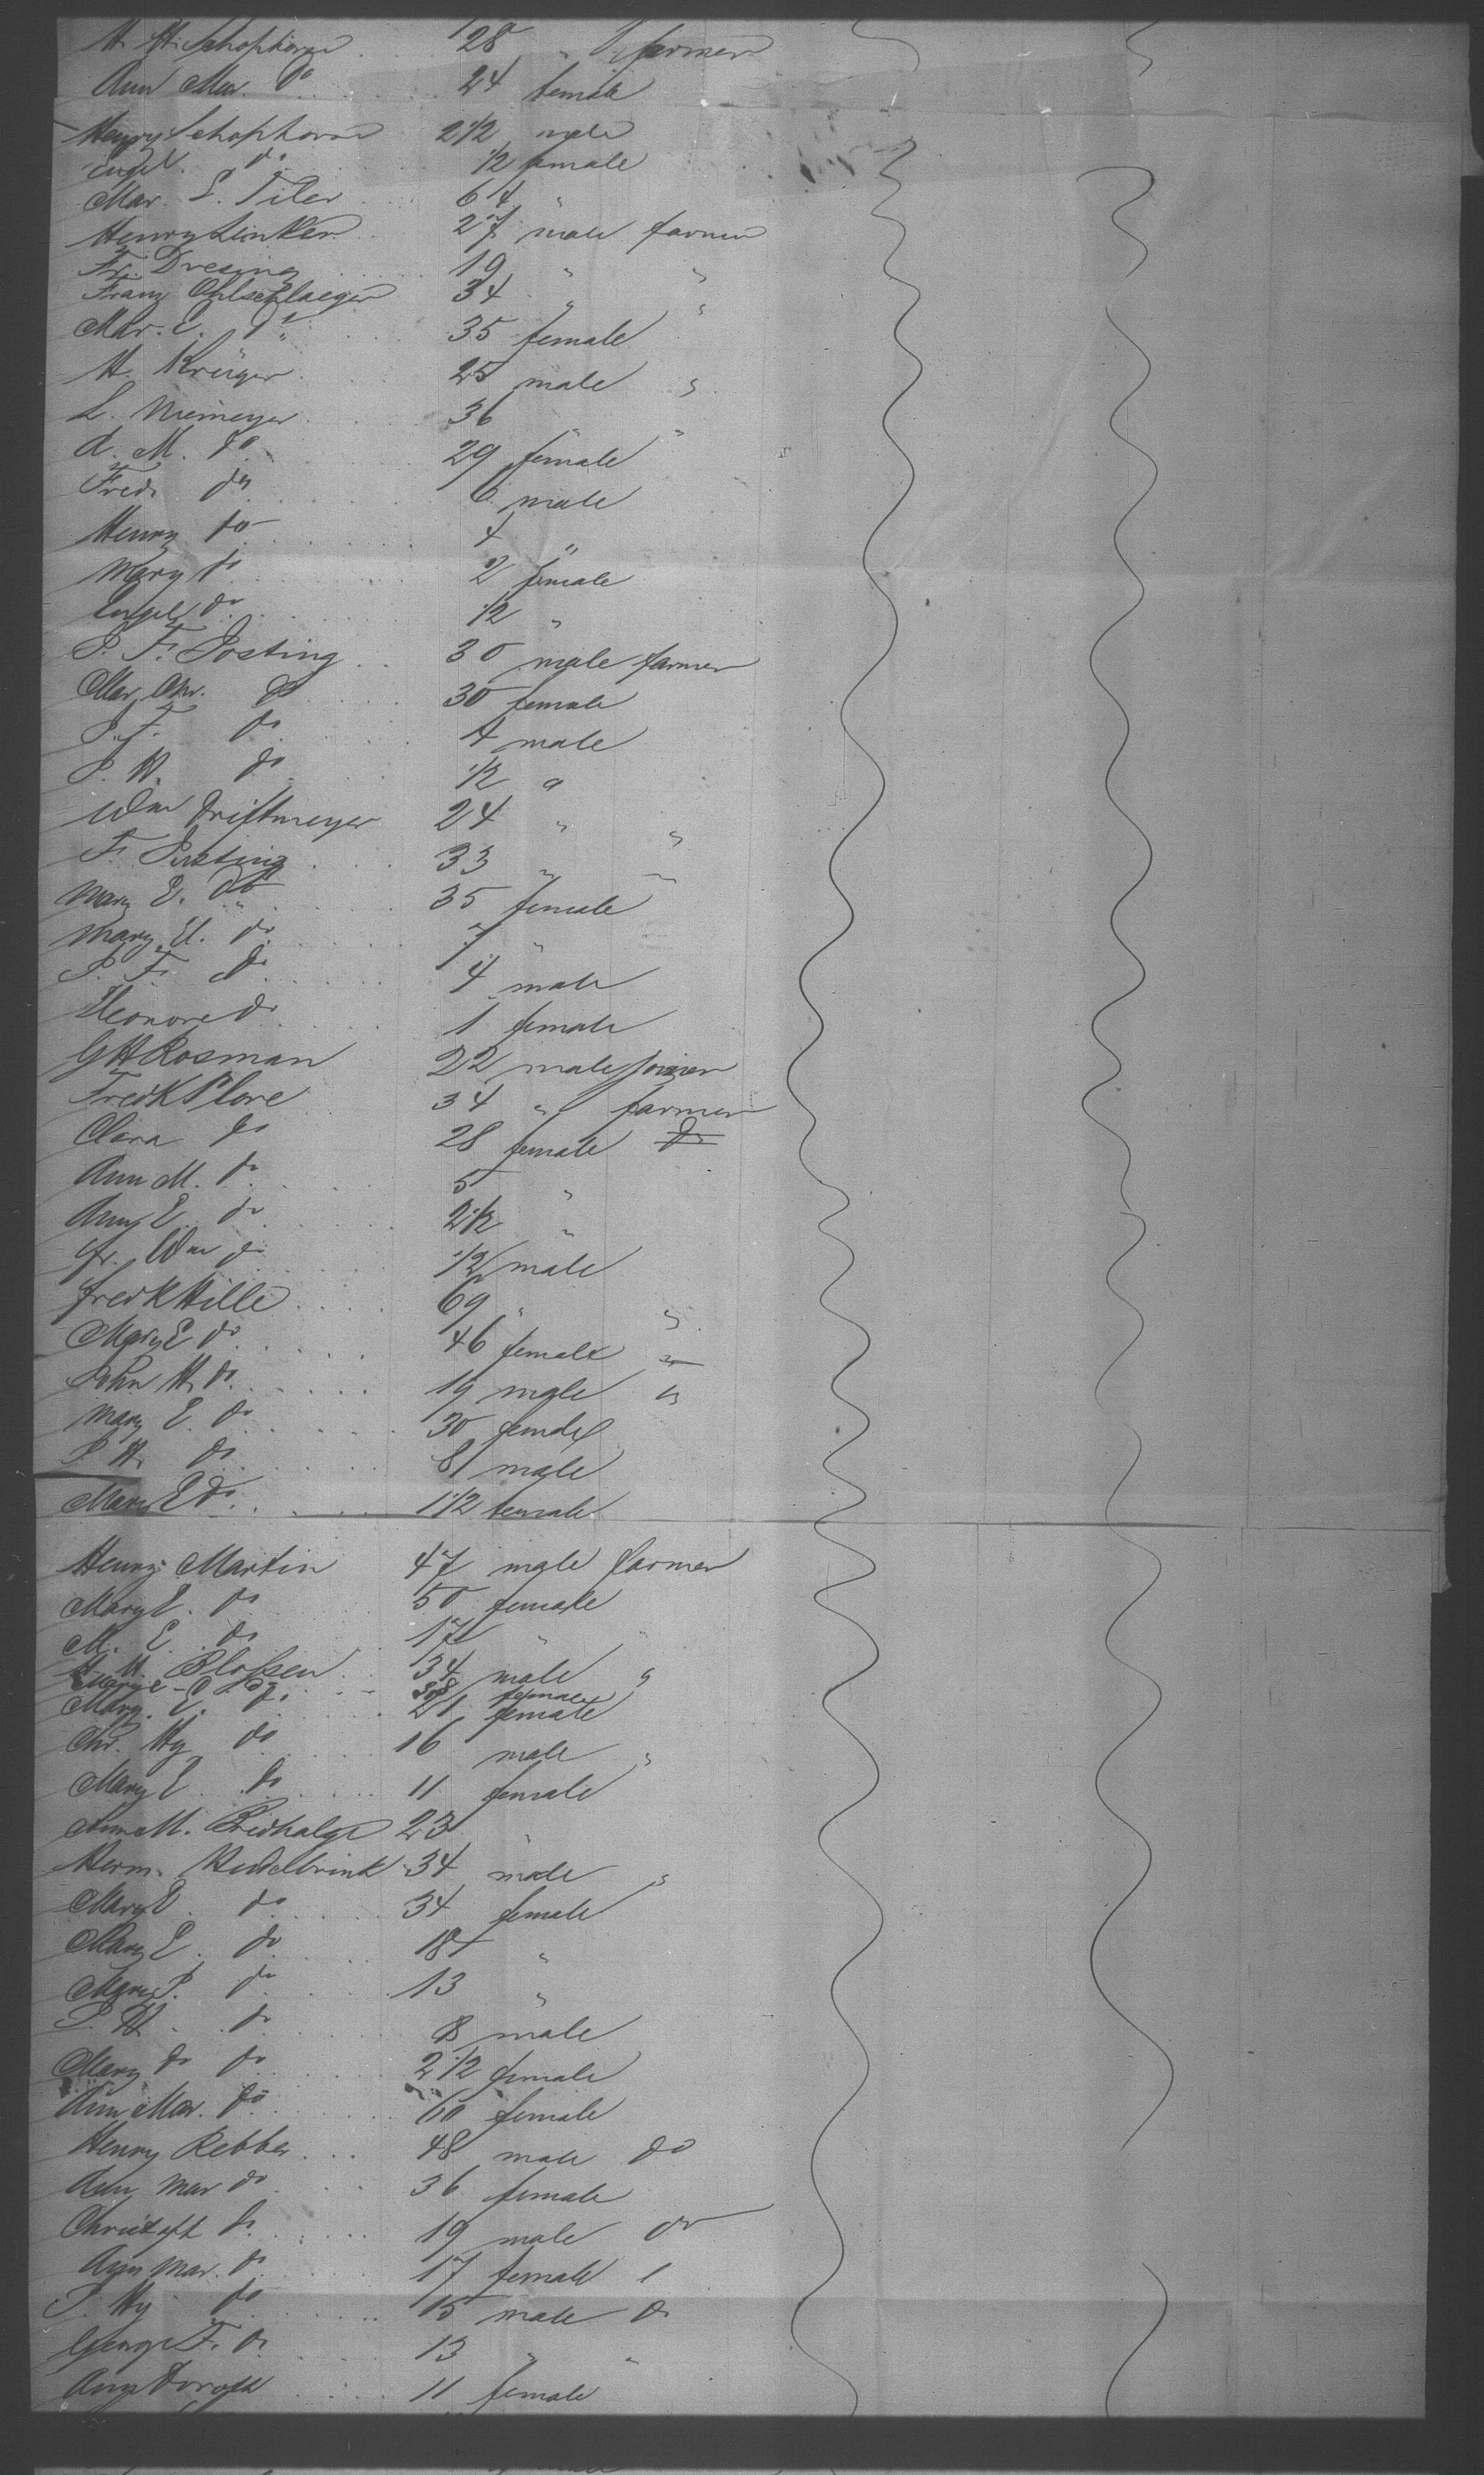 H. H. Schophorse 28 " farmer
Ann Mar. do 24 female
Henry Schophorse 2 1/2 male
Engel. do 1/2 female
Mar. E. Tiler 64 "
Henry Linker 27 male farmer
Fr. Dresing 19 " "
Franz Ohlschlaeger 34 " "
Mar. E. do 35 female
H. Krüger 25 male "
L. Niemeyer 36 " "
A. M. do 29 female
Fred. do 6 male
Henry do 4 "
Mary do 2 female
Engel do 1/2 "
P. F. Posting 30 male farmer
Mar. Chr. do 30 female
P. F. do 4 male
P. H. do 1/2 "
Wm Driftmeyer 24 " "
F. Posting 33 " "
Mary E. do 35 female
Mary El. do 7 "
P. F. do 4 male
Eleonore do 1 female
G H Rosman 22 male farmer
Fredk Plore 34 " farmer
Clara do 28 female do
Ann M. do 5 "
Ann E. do 2 1/2 "
Fr. Wm do 1/2 male
Fredk Hille 69 " "
Mary E do 46 female "
John H. do 19 male "
Mary E. do 30 female
P. H. do 8 male
Mary E do 1 1/2 female
Henry Martin 47 male farmer
Mary E. do 50 female
M. E. do 17 "
H. H. Blossen 34 male "
Mary E. do female
Mary. E. do 21 female
Chr. Hy do 16 male "
Mary E. do 11 female
Ann M. 23 "
Herm. Heidelbrink 34 male "
Mary E. do 34 female
Mary E. do 18 "
Mary P. do 13 "
P. H. do 8 male
Mary do do 2 1/2 female
Ann Mar. do 60 female
Henry Rebber 48 male do
Ann Mar do 36 female
Christoph do 19 male do
Ann Mar. do 17 female
P. Hy do 15 male do
George F. do 13 " "
Ann Doroth 11 female